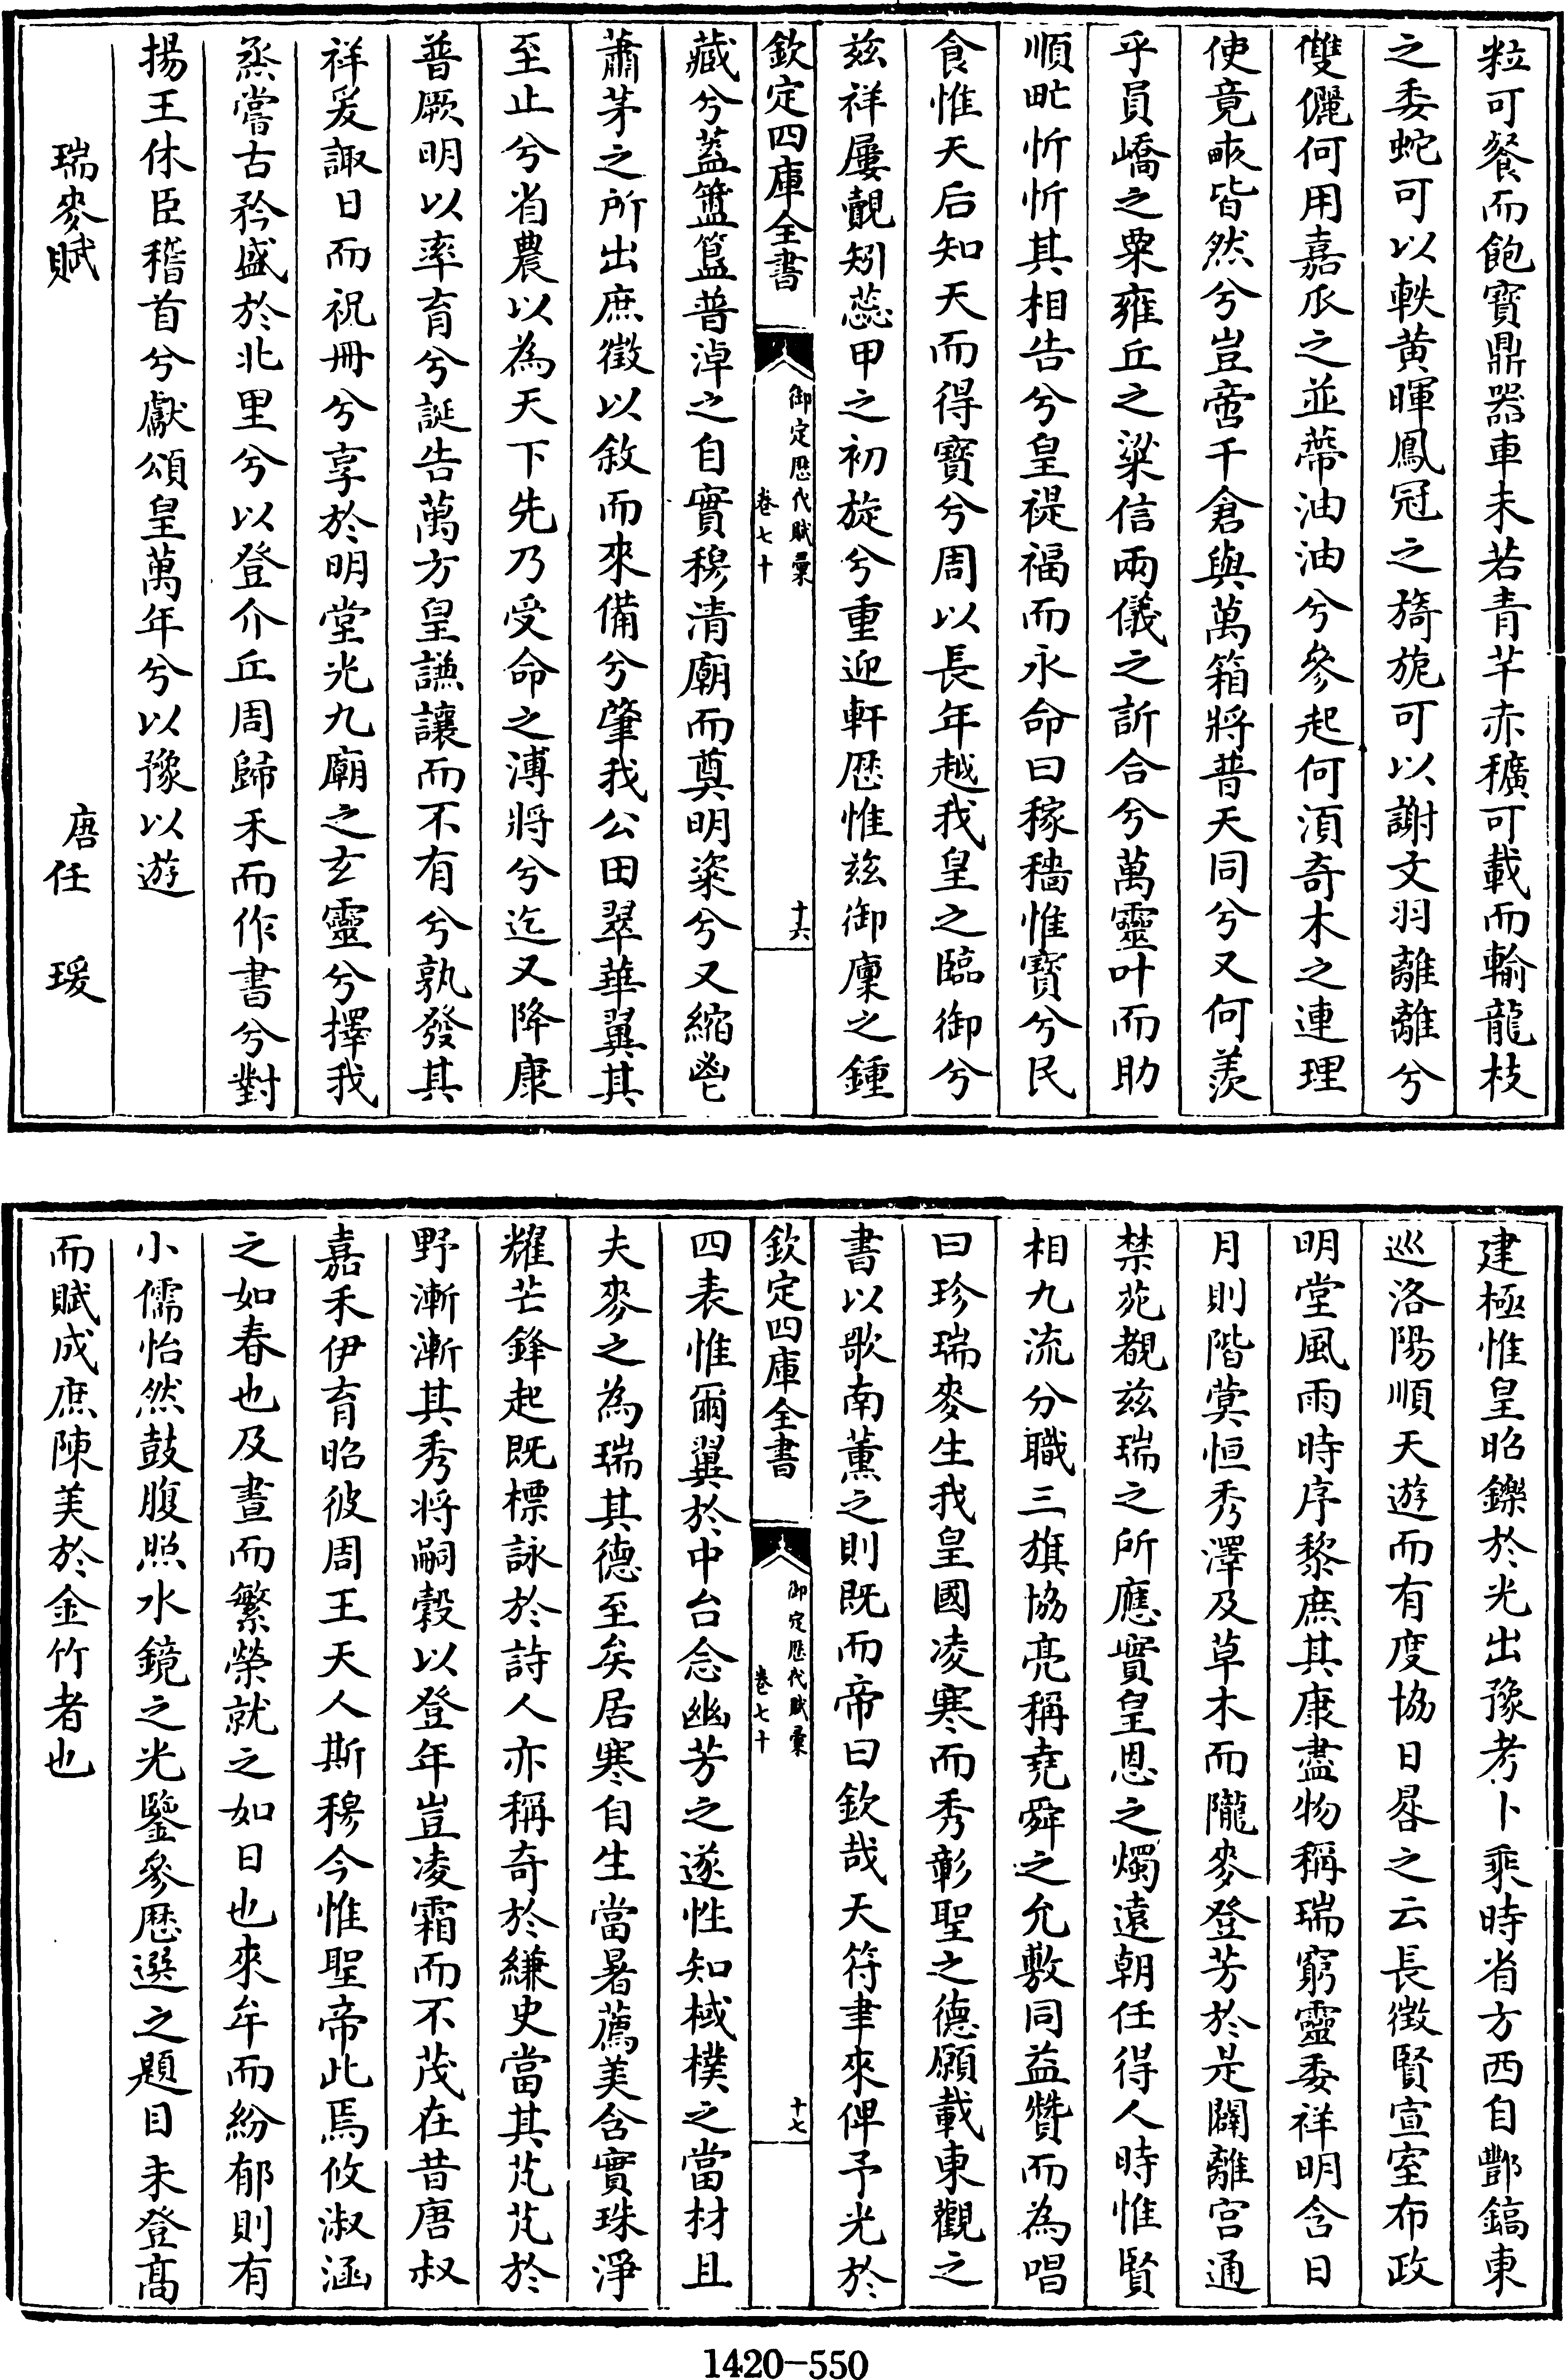 粒可餐而飽寳鼎器車未若青芊赤穬可載而輸龍枝
之委蛇可以軼黄暉鳳冠之旖旎可以謝文羽離離兮
雙儷何用嘉瓜之並蔕油油兮參起何湏奇木之連理
使竟畮皆然兮豈啻千倉與萬箱將普天同兮又何羨
乎員嶠之粟雍丘之粱信兩儀之訢合兮萬靈叶而助
順甿忻忻其相告兮皇禔福而永命曰稼穡惟寳兮民
食惟天后知天而得寳兮周以長年越我皇之臨御兮
兹祥屢覿矧蕊甲之初旋兮重迎軒歴惟兹御廩之鍾
欽定四庫全書
御定歴代賦彙
卷七十
十六
藏兮蓋簠簋普淖之自實穆清廟而奠明粢兮又縮鬯
蕭茅之所出庶徵以敘而來備兮肇我公田翠華翼其
至止兮省農以為天下先乃受命之溥將兮迄又降康
普厥明以率育兮誕告萬方皇謙讓而不有兮孰發其
祥爰諏日而祝冊兮享於明堂光九廟之玄靈兮擇我
烝嘗古矜盛於北里兮以登介丘周歸禾而作書兮對
揚王休臣稽首兮獻頌皇萬年兮以豫以遊
瑞麥賦
唐任瑗
建極惟皇昭鑠於光出豫考卜乘時省方西自酆鎬東
巡洛陽順天遊而有度協日晷之云長徵賢宣室布政
明堂風雨時序黎庶其康盡物稱瑞窮靈委祥明含日
月則階蓂恒秀澤及草木而隴麥登芳於是闢離宫通
禁苑覩兹瑞之所應實皇恩之燭遠朝任得人時惟賢
相九流分職三旗協亮稱堯舜之允敷同益贊而為唱
曰珍瑞麥生我皇國凌寒而秀彰聖之德願載東觀之
書以歌南薰之則既而帝曰欽哉天符聿來俾予光於
欽定四庫全書
御定歴代賦彙
卷七十
十七
四表惟爾翼於中台念幽芳之遂性知棫樸之當材且
夫麥之為瑞其德至矣居寒自生當暑薦美含實珠淨
耀芒鋒起既標詠於詩人亦稱奇於縑史當其芃芃於
野漸漸其秀将嗣榖以登年豈凌霜而不茂在昔唐叔
嘉禾伊育昭彼周王天人斯穆今惟聖帝此焉攸淑涵
之如春也及晝而繁榮就之如日也來牟而紛郁則有
小儒怡然鼓腹照水鏡之光鑒參歴選之題目未登髙
而賦成庶陳美於金竹者也
1420-550